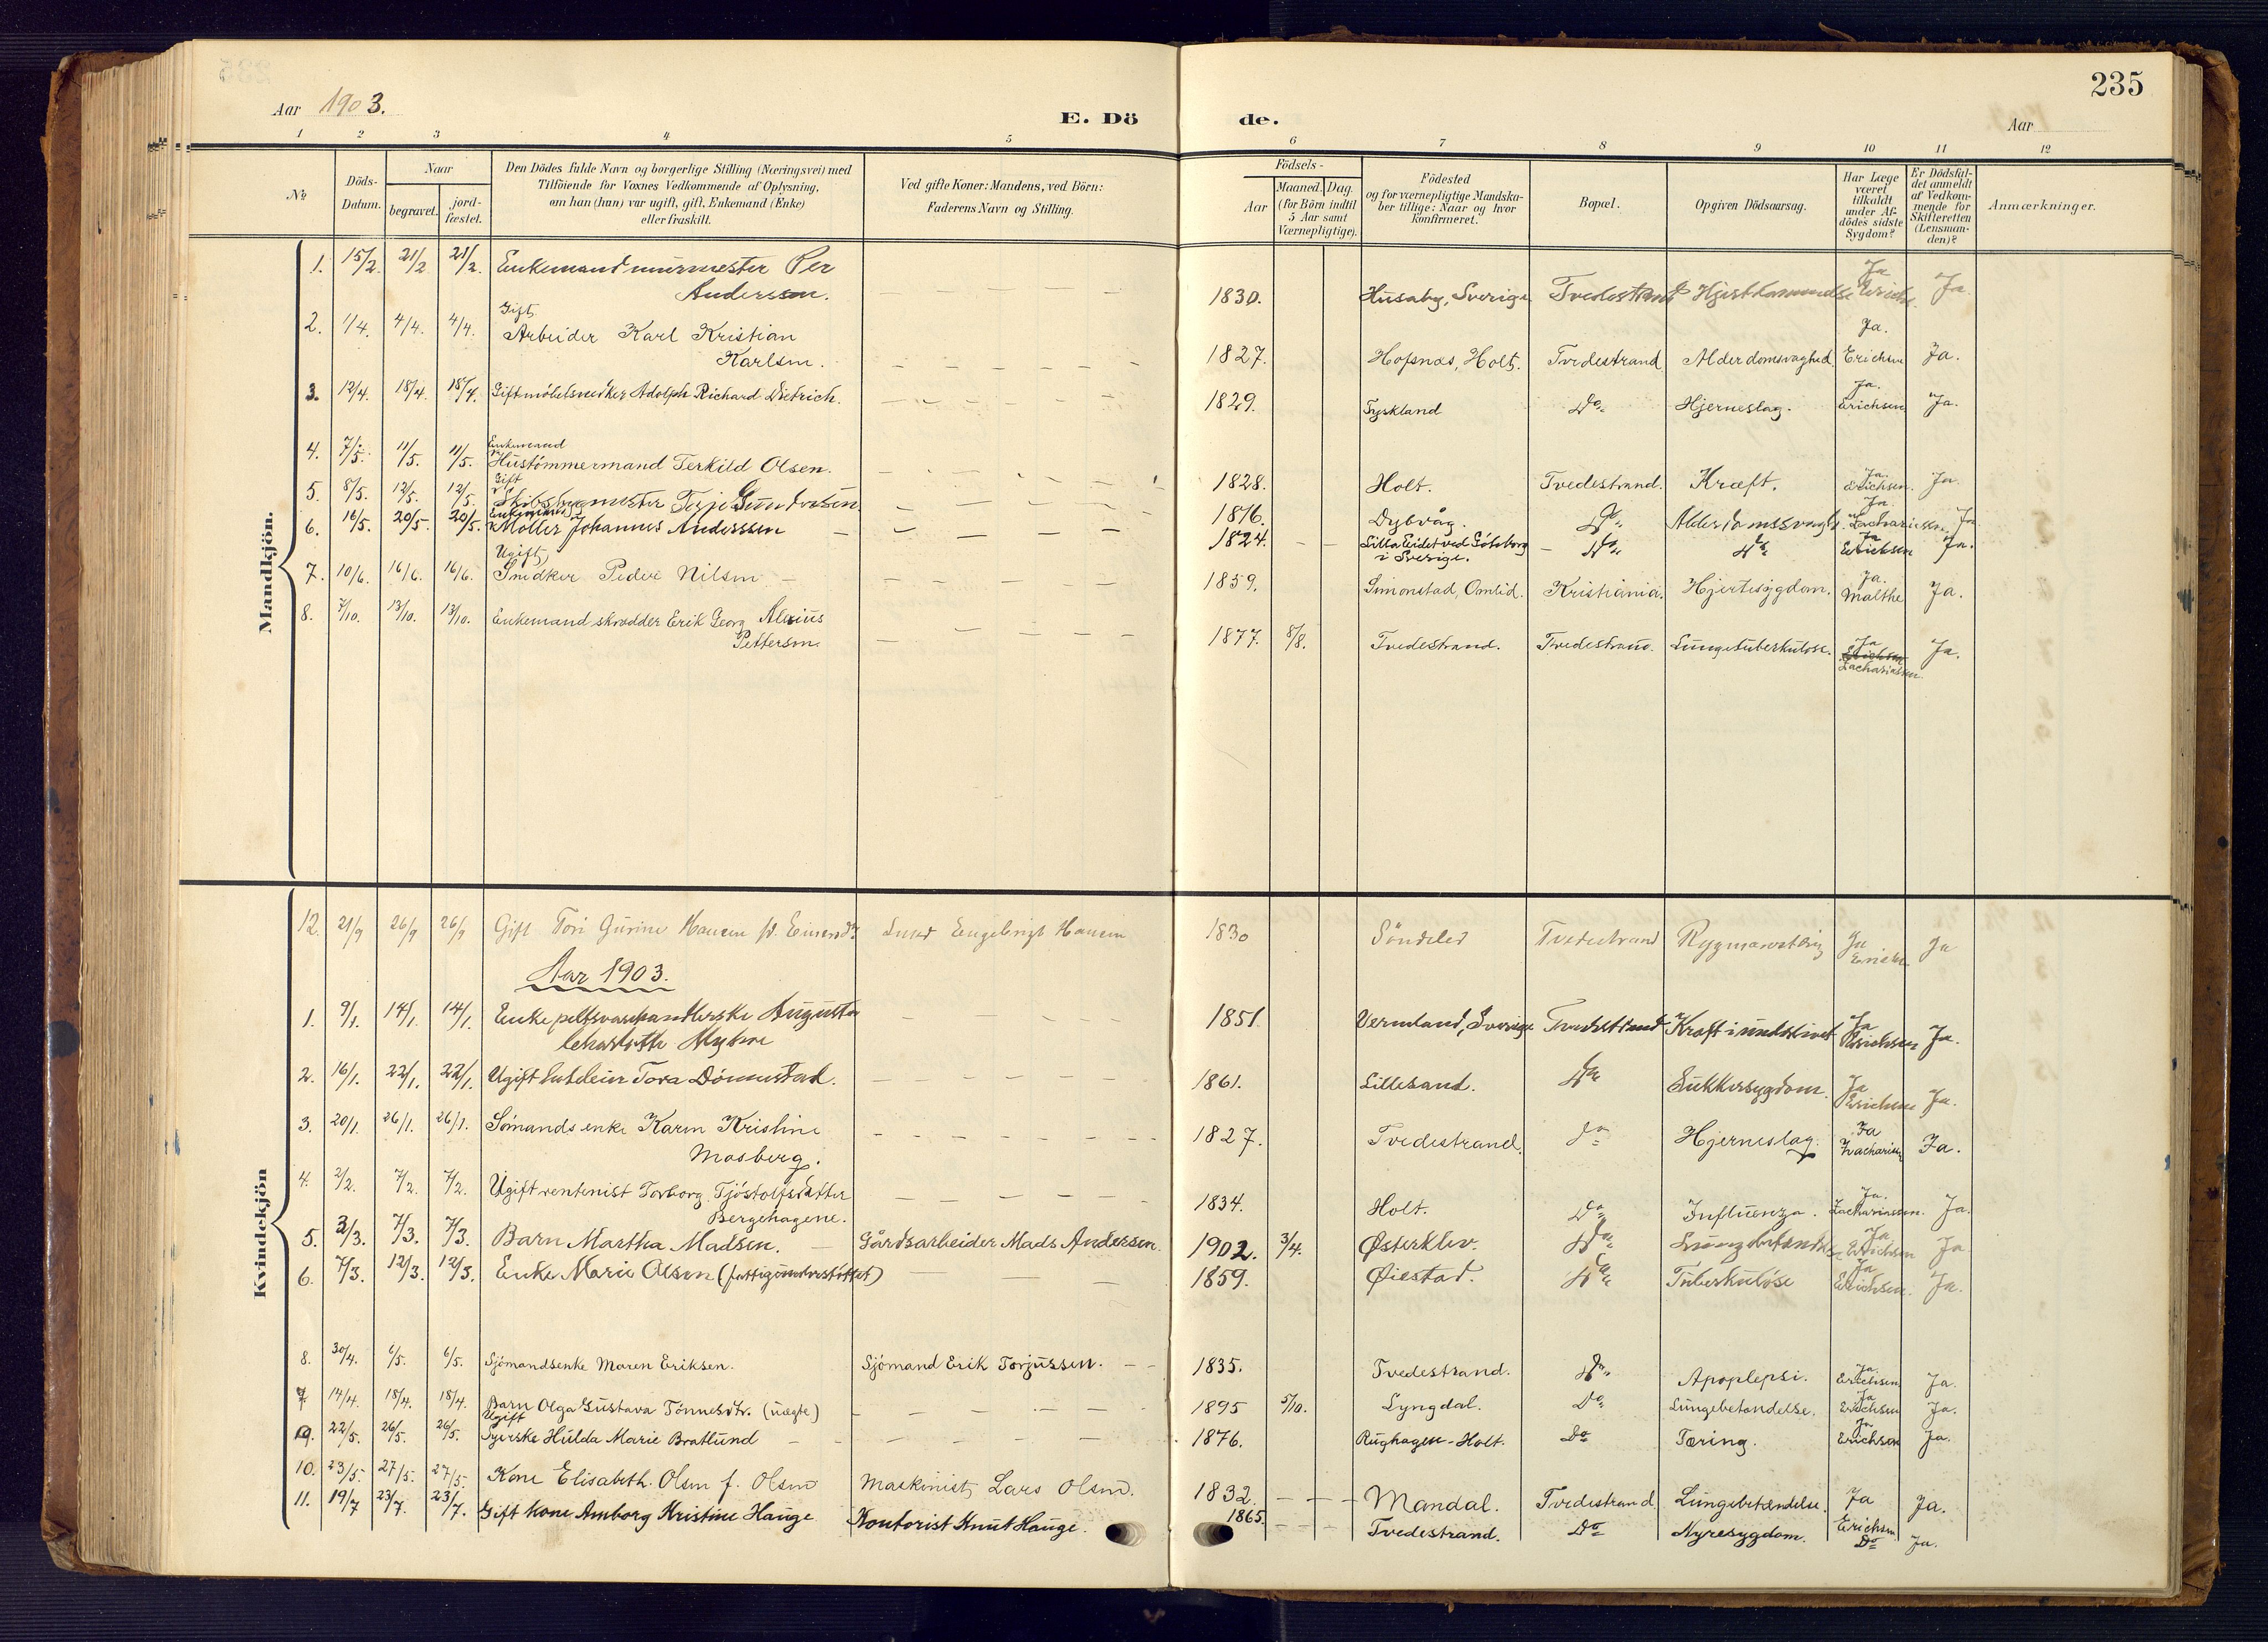 235
Aar 1903.
E. Dö de.
Aar
1 2 3 4 5 6 7 8 9 10 11 12
No
Döds-Datum.
Naar
begravet.
jord-fæstet.
Den Dödes fulde Navn og borgerlige Stilling (Næringsvei) med
Tilföiende for Voxnes Vedkommende af Oplysning,
om han (hun) var ugift, gift, Enkemand (Enke)
eller fraskilt.
Ved gifte Koner: Mandens, ved Börn:
Faderens Navn og Stilling.
Födsels-
Aar
Maaned. Dag.
(for Börn indtil
5 Aar samt
Værnepligtige).
Födested
og for værnepligtige Mandska-
ber tillige: Naar og hvor
konfirmeret.
Bopæl.
Opgiven Dödsaarsag.
Har Læge
været
tilkaldt
under Af-
dödes sidste
Sygdom?
Er Dödsfal-
det anmeldt
af Vedkom-
mende for
Skifteretten
(Lensman-
den)?
Anmærkninger.
Mandkjön.
1. 15/2. 21/2 21/2. Enkemand murmester Per
Andersson. 1830. Husaby, Sverige Tvedestrand Ja Ja.
2. 1/4. 4/4. 4/4. Gift
Arbeider Karl Kristian
Karlsen. 1827. Hofsnæs, Holt. Tvedestrand Alderdomsvaghed. Ja. Erichsen Ja.
3. 12/4. 18/4. 18/4. Gift møbelsnedker Adolph Richard Dietrich. 1829. Tyskland Do Hjerneslag. Ja. Erichsen Ja.
4. 7/5. 11/5. 11/5. Enkemand
Hustømmermand Terkild Olsen. 1828. Holt. Tvedestrand. Kræft. Ja. Erichsen. Ja.
5. 8/5. 12/5. 12/5. Gift
Skibsbygmester Terje Gundersen 1816. Dybvåg. Do Ja. Zachariassen. Ja
6. 16/5. 20/5. 20/5. Enkemand
Møller Johannes Anderssen 1824. Lilla Eidet ved Göteborg
i Sverige. Do Do Ja Erichsen Ja.
7. 10/6. 16/6. 16/6. Ugift
Snedker Peder Nilsen 1859. Simonstad, Omlid. Kristiania. Hjertesygdom. Ja. Malthe Ja.
8. 7/10. 13/10. 13/10. Enkemand skrædder Erik Georg Alexius
Petterson. 1877. 8/8. Tvedestrand. Tvedestrand. Lungetuberkulose. Ja Erichsen Zachariassen. Ja.
Kvindekjön
12. 21/9 26/9 26/9 Gift Tori Gurine Hansen Engebrigt Hansen 1830 Söndeled Tvedestrand Ja Ja
Aar 1903.
1. 9/1. 14/1. 14/1. Enke Augusta
Charlotte 1851. Vermland, Sverige Tvedestrand Kræft i underlivet Ja Erichsen Ja.
2. 16/1. 22/1. 22/1. Ugift Tora Dönnestad. 1861. Lillesand. Do Sukkersygdom. Ja Erichsen Ja.
3. 20/1. 26/1. 26/1. Sømands enke Karen Kristine
Mosberg. 1827. Tvedestrand. Do Hjerneslag. Ja Zachariassen Ja.
4. 2/2. 7/2. 7/2. Ugift rentenist Torborg Tjöstolfsdatter
Bergehagene. 1834. Holt. Do Influenza. Ja. Zachariassen. Ja.
5. 3/3. 7/3. 7/3. Barn Martha Madsen. Gårdsarbeider Mads Andersen. 1902. 3/4. Østerklev. Do Lungebetændelse Ja. Erichsen Ja
6. 7/3. 12/3. 12/3. Enke Marie Olsen (fattigunderstøttet) 1859. Øiestad. Do Tuberkuløse Ja Erichsen. Ja.
8. 30/4. 6/5. 6/5. Sjömandsenke Maren Eriksen. Sjömand Erik Torjussen. 1835. Tvedestrand. Do Apoplepsi. Ja. Erichsen. Ja.
7. 14/4. 18/4. 18/4. Barn Olga Gustava Tönnesdtr. (uægte) 1895 5/10. Lyngdal. Do Lungebetændelse. Ja Erichsen Ja.
9. 22/5. 26/5. 26/5. Ugift
Syerske Hulda Marie Bratlund 1876. Rughagen - Holt. Do Tæring. Ja Erichsen Ja.
10. 23/5. 27/5. 27/5. Kone Elisabeth Olsen f. Olsen Maskinist Lars Olsen. 1832. Mandal. Tvedestrand. Lungebetændelse. Ja Erichsen Ja.
11. 19/7 23/7. 23/7. Gift kone Amborg Kristine Hauge Kontorist Knut Hauge. 1865. Tvedestrand. Do Nyresygdom. Do Ja.